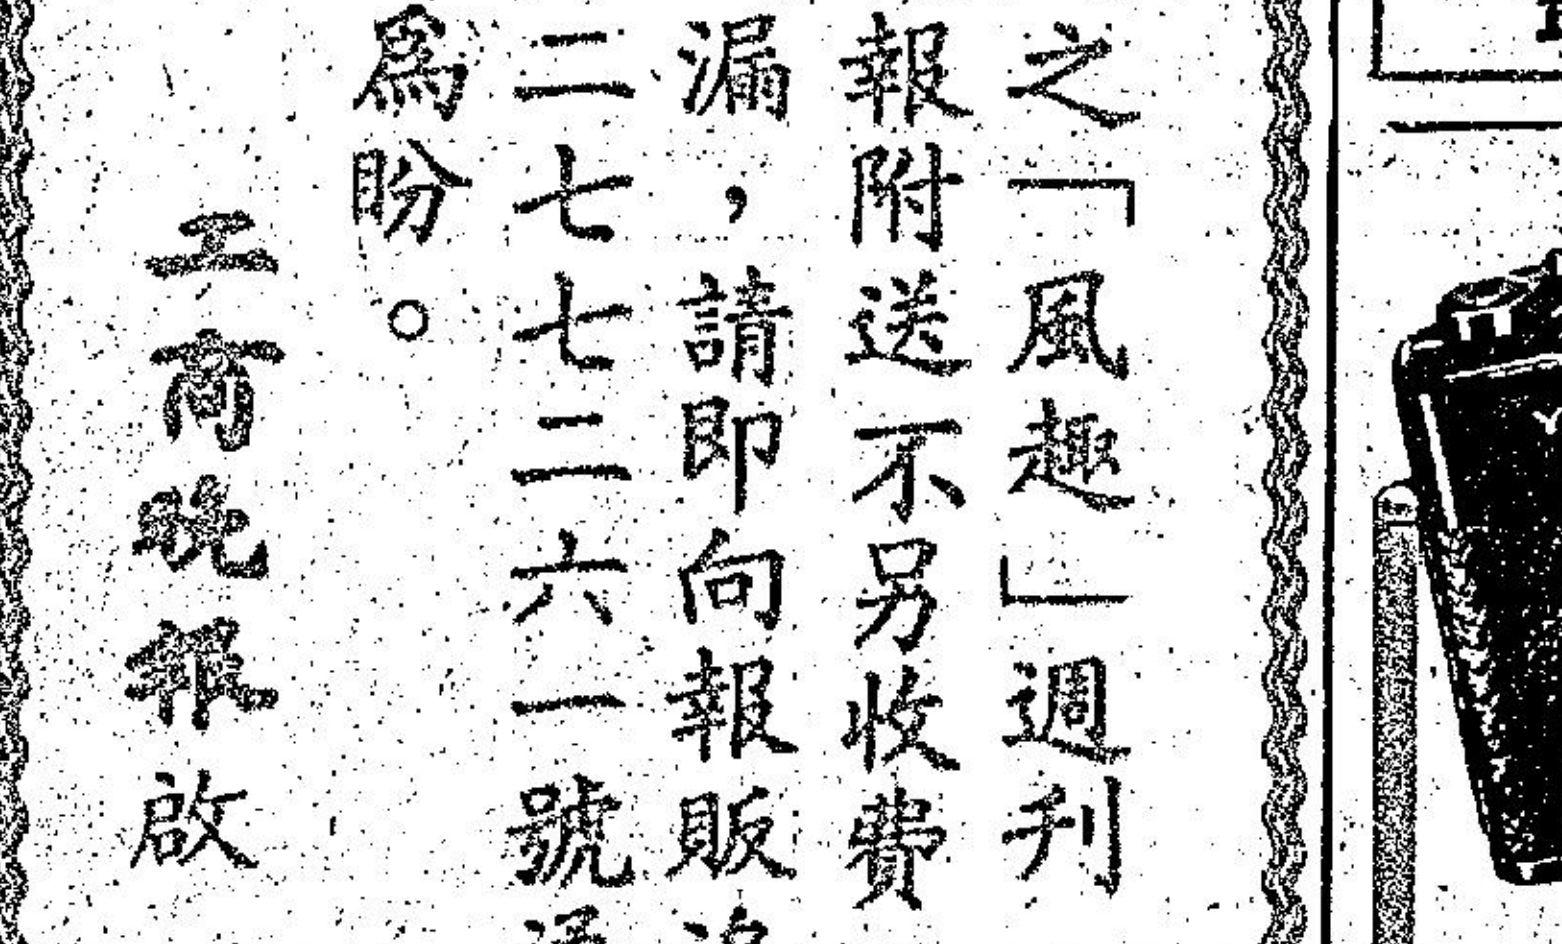 之「風趣」週刋
報附送不另收費
漏，請即向報販
二七七二六一號
為盼。
工商晚報啟